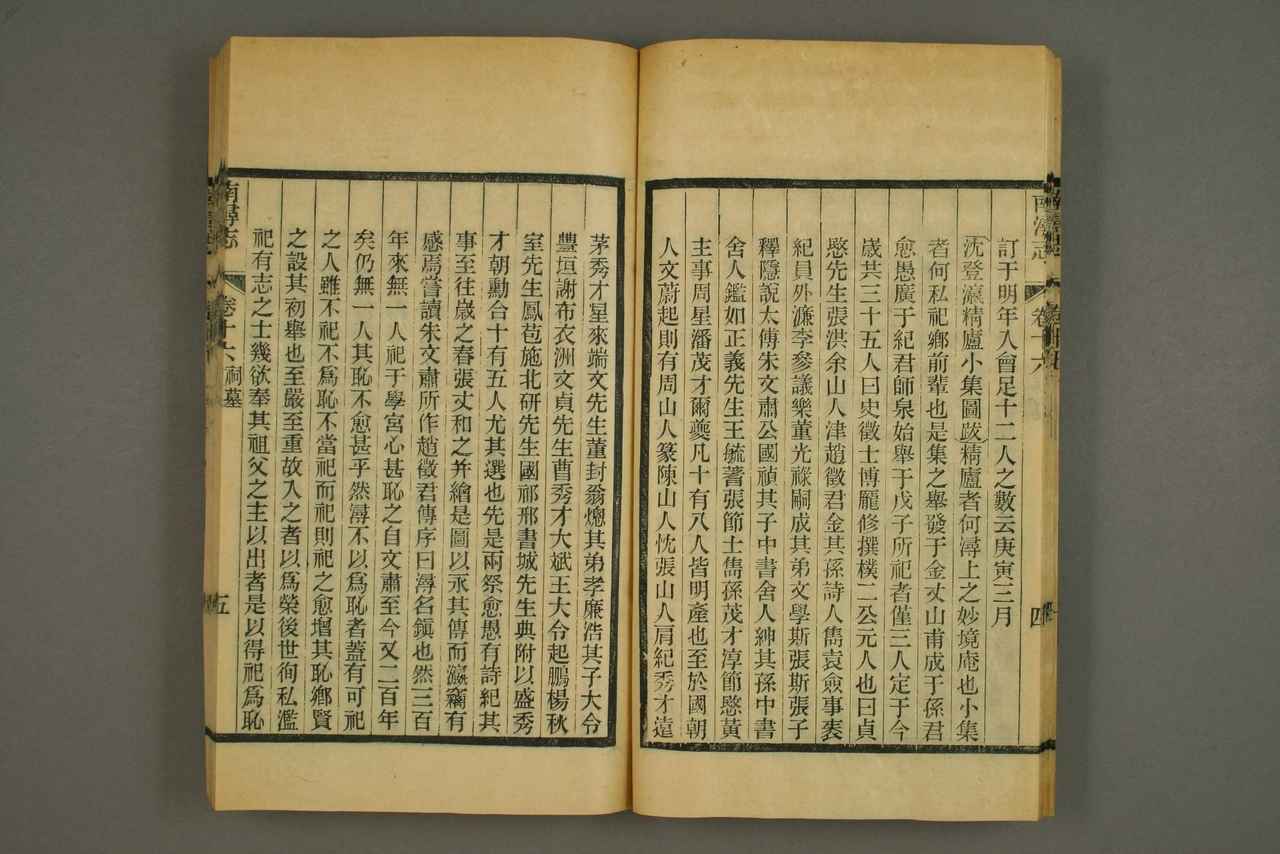 南潯志
卷十六
四
訂于明年入會足十二人之數云庚寅三月
沈登瀛精廬小集圖跋精廬者何潯上之妙境庵也小集
者何私祀鄉前輩也是集之舉發于金丈山甫成于孫君
愈愚廣于紀君師泉始舉于戊子所祀者僅三人定于今
歲共三十五人曰史徵士博龎修撰樸二公元人也曰貞
愍先生張洪余山人津趙徵君金其孫詩人雋袁僉事袠
紀員外濂李參議樂董光祿嗣成其弟文學斯張斯張子
釋隱說太傅朱文肅公國禎其子中書舍人紳其孫中書
舍人鑑如正義先生王毓蓍張節士雋孫茂才淳節愍黃
主事周星潘茂才爾夔凡十有八人皆明產也至於國朝
人文蔚起則有周山人篆陳山人忱張山人肩紀秀才遠
茅秀才星來端文先生董封翁熜其弟孝廉浩其子大令
豐垣謝布衣洲文貞先生曹秀才大斌王大令起鵬楊秋
室先生鳳苞施北研先生國祁邢書城先生典附以盛秀
才朝勳合十有五人尤其選也先是兩祭愈愚有詩紀其
事至往歲之春張丈和之幷繪是圖以永其傳而瀛竊有
感焉嘗讀朱文肅所作趙徵君傳序曰潯名鎭也然三百
年來無一人祀于學宮心甚恥之自文肅至今又二百年
矣仍無一人其恥不愈甚乎然潯不以爲恥者蓋有可祀
之人雖不祀不爲恥不當祀而祀則祀之愈增其恥鄉賢
之設其初舉也至嚴至重故入之者以爲榮後世徇私濫
祀有志之士幾欲奉其祖父之主以出者是以得祀爲恥
南潯志
卷十六
祠墓
五